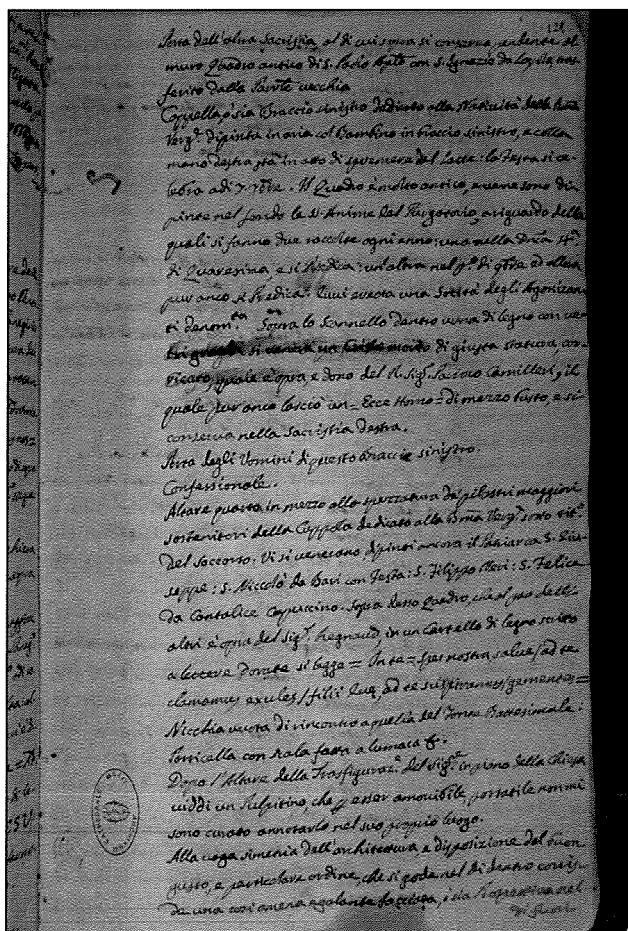 128
Porta dell'altra Sacristia, al di cui sopra si conserva, pendente al
muro Quadro antico di S. Paolo con S. Ignazio da Loyola, tras-
ferito dalla vecchia
Cappella, o sia Braccio sinistro dedicato alla Natività della
Verg.e dipinta in aria col Bambino in braccio sinistro, e colla
mano destra stà in atto di spremere del Latte: la Festa si ce-
lebra adi 7bre. Il Quadro è molto antico, e vene sono di-
pinte nel fondo le SS. Anime del Purgatorio, a riguardo delle
quali si fanno due raccolte ogni anno: una nella Dom.ca 4.a
di Quaresima, e si Predica: un'altra nel p.o di 9bre ed allora
pur anco si Predica. Quivi eretta una Società degli Agonizan-
ti Sopra lo Scannello dentro urna di legno con ve-
tri si venera un Cristo morto di giusta statura, cor-
ricato, quale è opra, e dono del R. Sig. Camilleri, il
quale pur anco lasciò un = Ecce Homo = di mezzo busto, e si
conserva nella Sacristia destra.
Porta degli Uomini di questo braccio sinistro
Confessionale.
Altare quarto in mezzo alla spezzatura de' pilastri maggiori
sostenitori della Cuppola dedicato alla Verg.e sotto tit.o
del soccorso. Vi si venerano, dipinti ancora il Patriarca S. Giu-
seppe: S. Niccolò da Bari con Festa: S. Filippo Neri: S. Felice
da Cantalice Capuccino. Sopra detto Quadro, che al par delli
altri è opra del Sig.r Regnaud, in un Cartello di legno scritto
a lettere Dorate si legge = In te = spes nostra salve / ad te
clamamus exules / filii Evae, ad te suspiramus / gementes =
Nicchia vuota di rincontro a quella del Fonte Battesimale.
Porticella con Scala fatta a lumaca &.
Dopo l'Altare della Trasfiguraz.e del Sig.re in piano della Chiesa
viddi un Pulpitino, che p esser amovibile, portatile non mi
sono curato annotarlo nel suo proprio luogo.
Alla vaga simetria dell'architettura, e disposizione del buon
gusto, e particolare ordine, che si gode nel di dentro corris-
de una così amena e galante facciata, o sia Prospettiva nel
di fuori